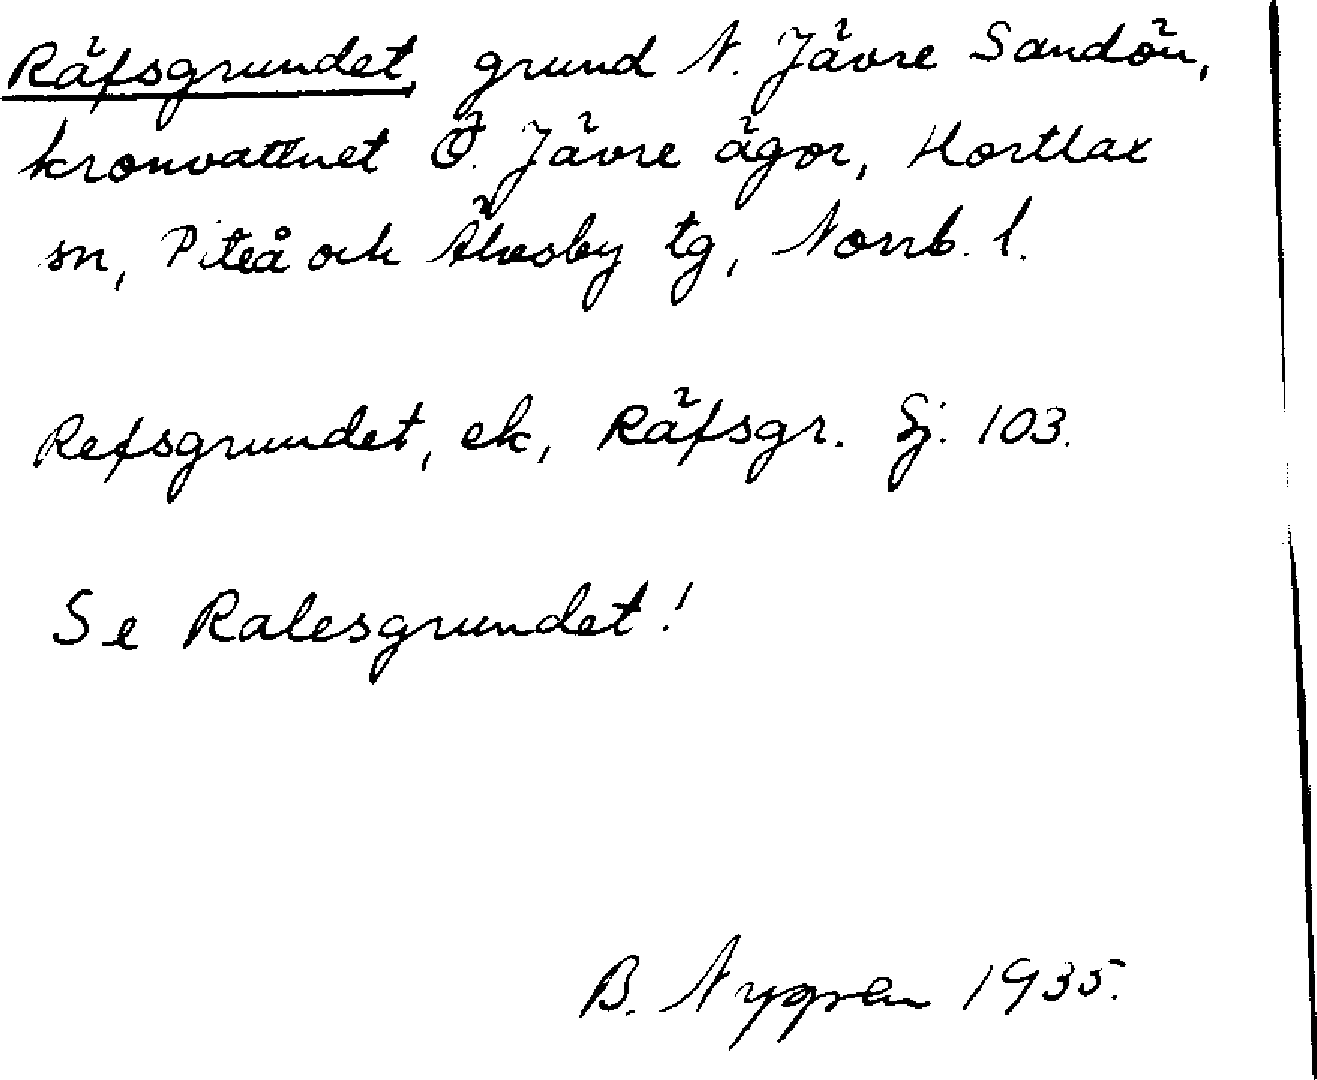 Räfsgrundet, grund N. Jävre Sandön,
kronvattnet Ö. Jävre ägor, Hortlax
sn, Piteå och Älvsby tg, Norrb. l.
Refsgrundet, ek, Räfsgr. Sj. 103.
Se Ralesgrundet!
B. Nygren 1935.